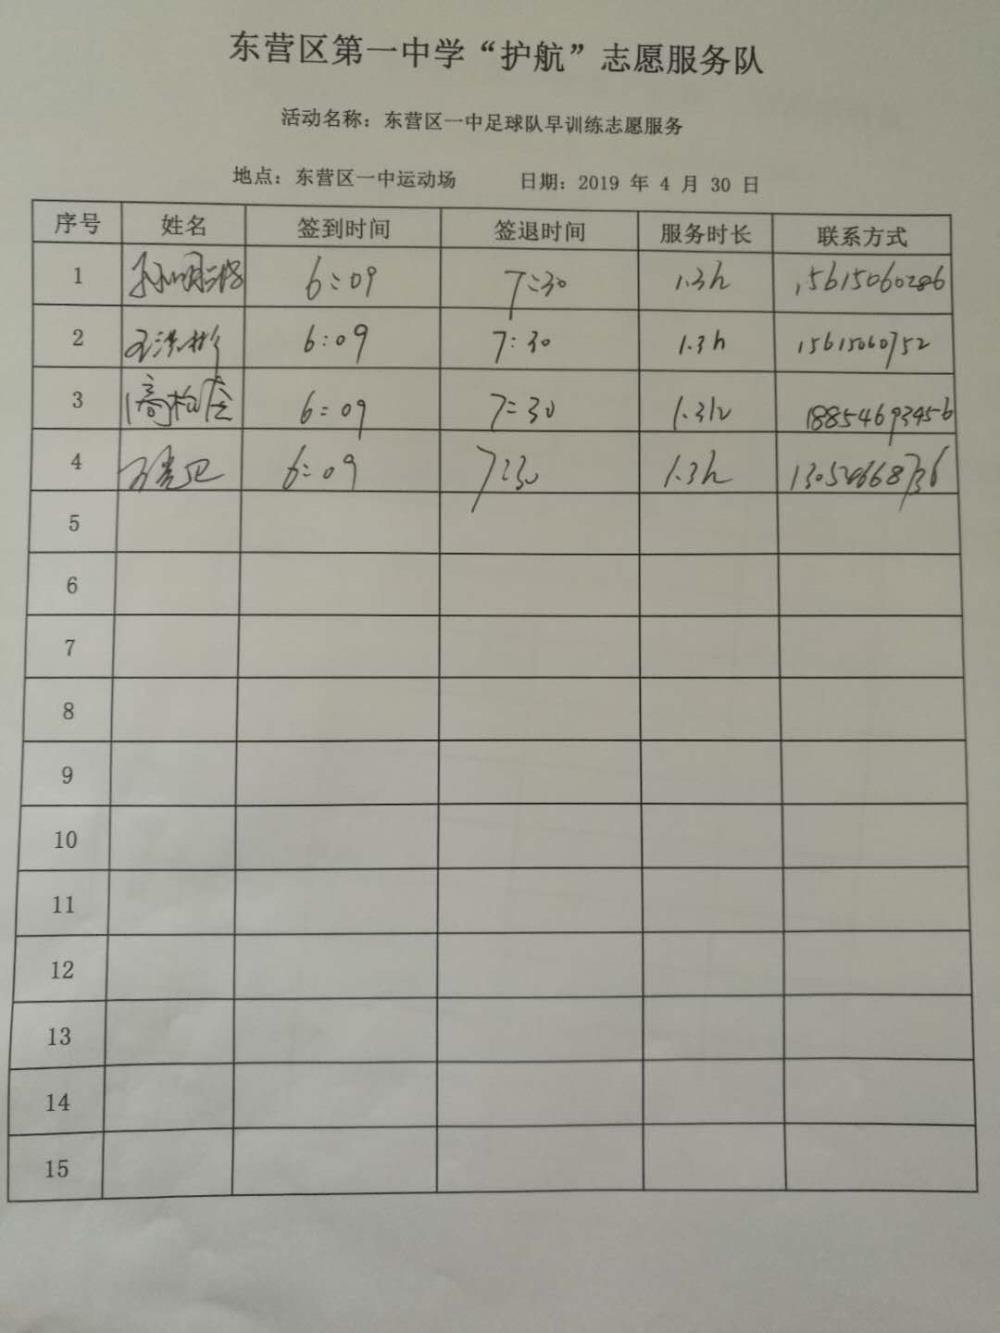 东营区第一中学“护航”志愿服务队
活动名称：东营区一中足球队早训练志愿服务
地点：东营区一中运动场 日期：2019 年 4 月 30 日
序号 姓名 签到时间 签退时间 服务时长 联系方式
1 6:09 7:30 1.3h 15615060286
2 王洪彬 6:09 7:30 1.3h 15615060752
3 6:09 7:30 1.3h 18854693456
4 6:09 7:30 1.3h
5
6
7
8
9
10
11
12
13
14
15